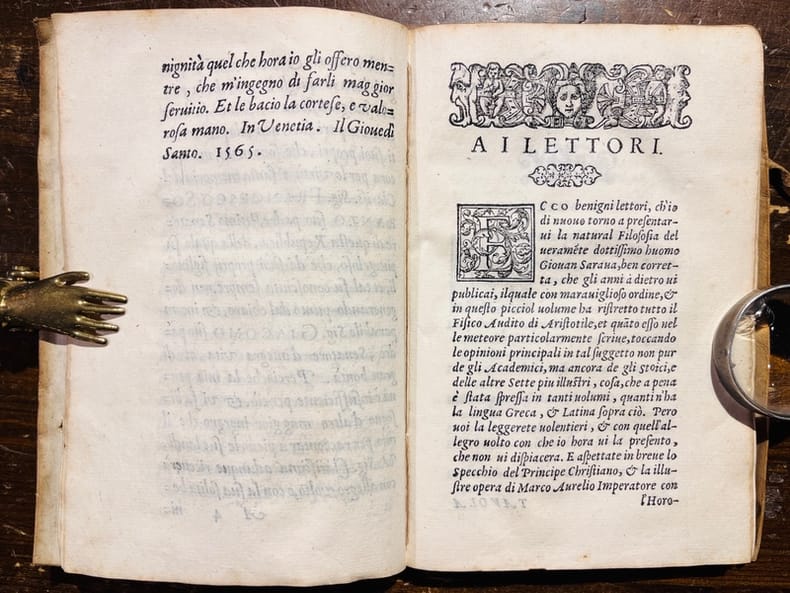 nignità quel che hora io gli offero men=
tre, che m'ingegno di farli maggior
seruitio. Et le bacio la cortese, e valo=
rosa mano. In Venetia. Il Giouedì
Santo. 1565.
A I LETTORI.
ECCO benigni lettori, ch'io
di nuouo torno a presentar-
ui la natural Filosofia del
ueramẽte dottissimo huomo
Giouan Saraua, ben corret-
ta, che gli anni à dietro ui
publicai, ilquale con marauiglioso ordine, &
in questo picciol uolume ha ristretto tutto il
Fisico Audito di Aristotile, et quãto esso nel
le meteore particolarmente scriue, toccando
le opinioni principali in tal suggetto non pur
de gli Academici, ma ancora de gli stoici, e
delle altre Sette piu illustri, cosa, che a pena
è stata spressa in tanti uolumi, quanti n'ha
la lingua Greca, & Latina sopra ciò. Pero
uoi la leggerete uolentieri, & con quell'al-
legro uolto con che io hora ui la presento,
che non ui dispiacera. E aspettate in breue lo
Specchio del Principe Christiano, & la illu-
stre opera di Marco Aurelio Imperatore con
l'Horo-